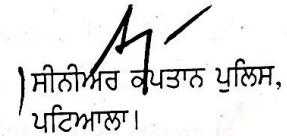 ਸੀਨੀਅਰ ਕਪਤਾਨ ਪੁਲਿਸ,
ਪਟਿਆਲਾ।